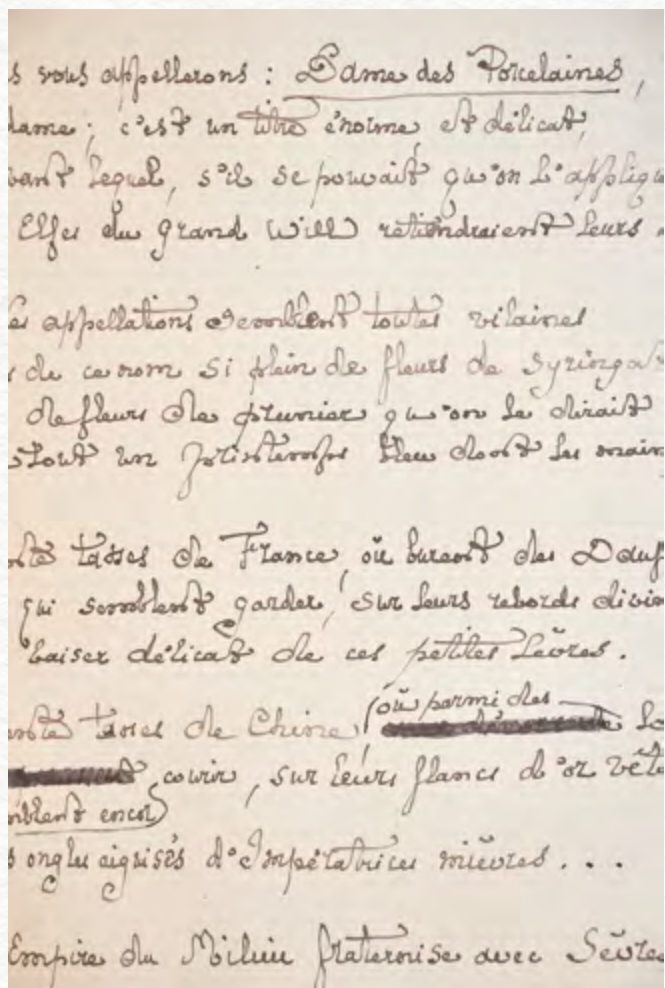 s vous appellerons : Dame des Porcelaines,
dame ; c'est un titre énorme, et délicat,
vant lequel, s'il se pouvait qu'on l'appliq
Elfes du Grand Will retiendraient leurs
es appellations semblent toutes vilaines
s de ce nom si plein de fleurs de Syringa
de fleurs de prunier qu'on le dirait
tout un printemps bleu dont les main
tasses de France, où burent des Dauf
qui semblent garder, sur leurs rebords divin
baiser délicat de ces petites lèvres.
tasses de Chine où parmi des
courir, sur leurs flancs d'or vêtu
mblent encor
s ongles aiguisés d'Impératrices mièvres...
Empire du Milieu fraternise avec Sèvres